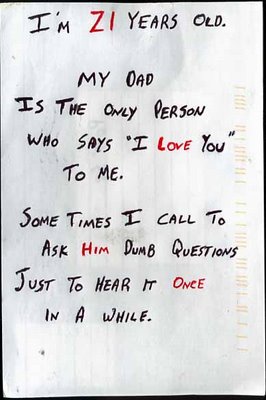 I'M 21 YEARS OLD.
MY DAD
IS THE ONLY PERSON
WHO SAYS "I LOVE YOU"
TO ME.
SOME TIMES I CALL TO
ASK HIM DUMB QUESTIONS
JUST TO HEAR IT ONCE
IN A WHILE.